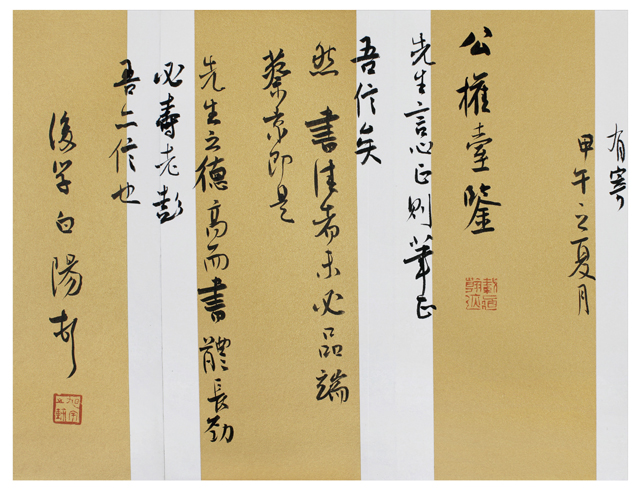 有寄
甲午之夏月
公權臺鑒
先生言心正則筆正
吾信矣
然書佳者未必品端
蔡京即是
先生之德高而書體長勁
必壽老彭
吾亦信也
後学白陽